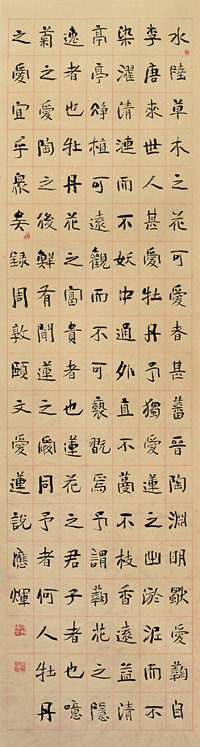 水陸草木之花可愛者甚蕃晉陶淵明獨愛鞠自
李唐來世人甚愛牡丹予獨愛蓮之出淤泥而不
染濯清漣而不妖中通外直不蔓不枝香遠益清
亭亭淨植可遠觀而不可褻翫焉予謂鞠花之隱
逸者也牡丹花之富貴者也蓮花之君子者也噫
菊之愛陶之後鮮有聞蓮之愛同予者何人牡丹
之愛宜乎眾矣錄周敦頤文愛蓮說應輝